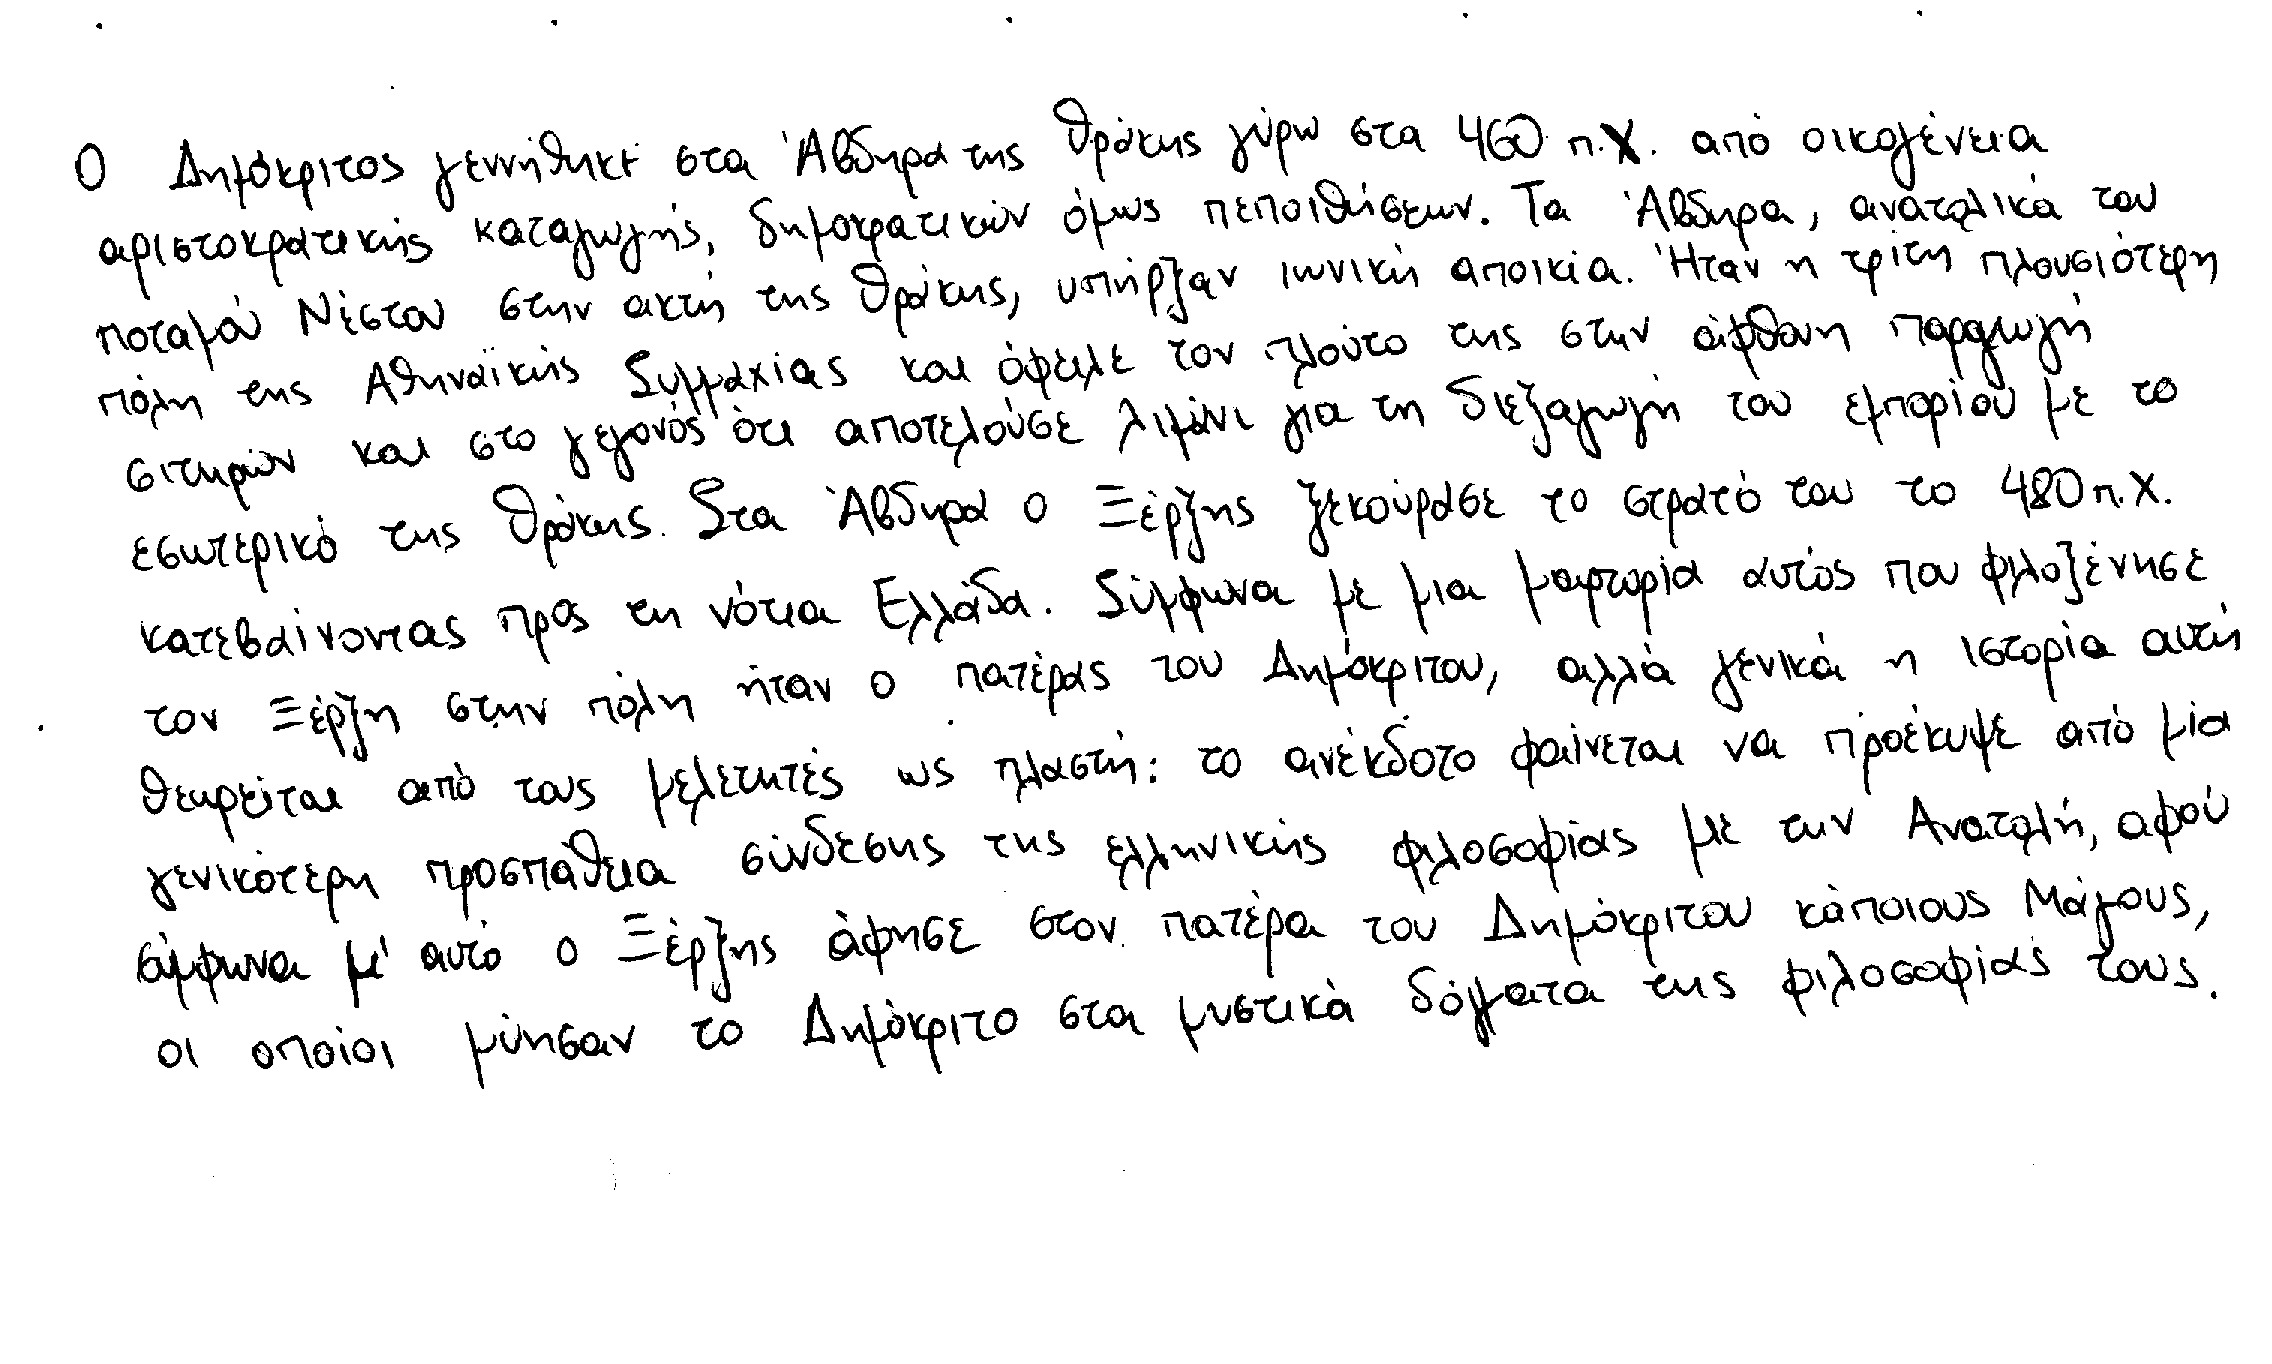 Ο Δημόκριτος γεννήθηκε στα Άβδηρα της Θράκης γύρω στα 460 π.Χ. από οικογένεια
αριστοκρατικής καταγωγής, δημοκρατικών όμως πεποιθήσεων. Τα Άβδηρα, ανατολικά του
ποταμού Νέστου στην ακτή της Θράκης, υπήρξαν ιωνική αποικία. Ήταν η τρίτη πλουσιότερη
πόλη της Αθηναϊκής Συμμαχίας και όφειλε τον πλούτο της στην άφθονη παραγωγή
σιτηρών και στο γεγονός ότι αποτελούσε λιμάνι για τη διεξαγωγή του εμπορίου με το
εσωτερικό της Θράκης. Στα Άβδηρα ο Ξέρξης ξεκούρασε το στρατό του το 480 π.Χ.
κατεβαίνοντας προς τη νότια Ελλάδα. Σύμφωνα με μια μαρτυρία αυτός που φιλοξένησε
τον Ξέρξη στην πόλη ήταν ο πατέρας του Δημόκριτου, αλλά γενικά η ιστορία αυτή
θεωρείται από τους μελετητές ως πλαστή: το ανέκδοτο φαίνεται να προέκυψε από μία
γενικότερη προσπάθεια σύνδεσης της ελληνικής φιλοσοφίας με την Ανατολή, αφού
σύμφωνα μ' αυτό ο Ξέρξης άφησε στον πατέρα του Δημόκριτου κάποιους Μάγους,
οι οποίοι μύησαν το Δημόκριτο στα μυστικά δόγματα της φιλοσοφίας τους.